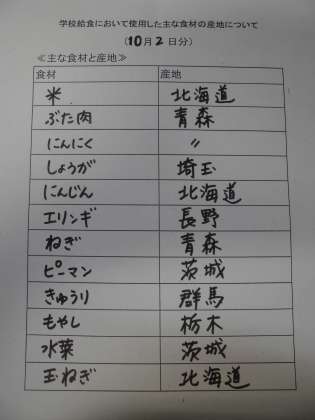 学校給食において使用した主な食材の産地について
(10月2日分)
≪主な食材と産地≫
食材 産地
米 北海道
ぶた肉 青森
にんにく 〃
しょうが 埼玉
にんじん 北海道
エリンギ 長野
ねぎ 青森
ピーマン 茨城
きゅうり 群馬
もやし 栃木
水菜 茨城
玉ねぎ 北海道